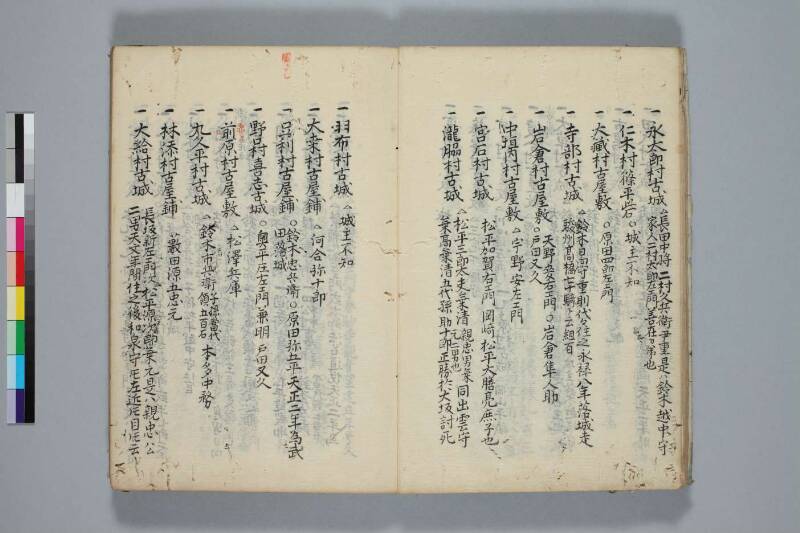 一 永太郎村古城 △長田中将 二村久兵衛尹重是ハ鈴木越中守
家人二村太郎左エ門
一 仁木村篠平岩 ○城主不知
一 大蔵村古屋敷 ○原田四郎左エ門
一 寺部村古城 △鈴木日向守重則代々住之永禄八年落城走
駿州高橋
一 岩倉村古屋敷 天野 右エ門 ○岩倉隼人助
○戸田又久
一 中垣内村古屋敷 △宇野安左エ門
一 宮石村古城 松平加賀右エ門 岡崎松平大膳亮庶子也
一 瀧脇村古城 △松平二郎太夫乗清 親忠男乗元二男也 同出雲守
乗高乗清五代孫助十郎正勝於大坂討死
一 羽布村古城 △城主不知
一 大桑村古屋鋪 △河合弥十郎
一 呂利村古屋鋪 ○鈴木忠兵衛 ○原田弥五平天正二年為武
田落城
一 野口村喜志古城 ○奥平庄左エ門兼明 戸田又久
一 前原村古屋敷 △松澤兵庫
一 九久平村古城 △鈴木市兵衛 子孫當代領五百石 本多中務
一 林添村古屋鋪 △藪田源五忠元
一 大給村古城 長坂新左エ門 次松平源次郎乗元是ハ親忠公
二男天文年間住之後和泉守